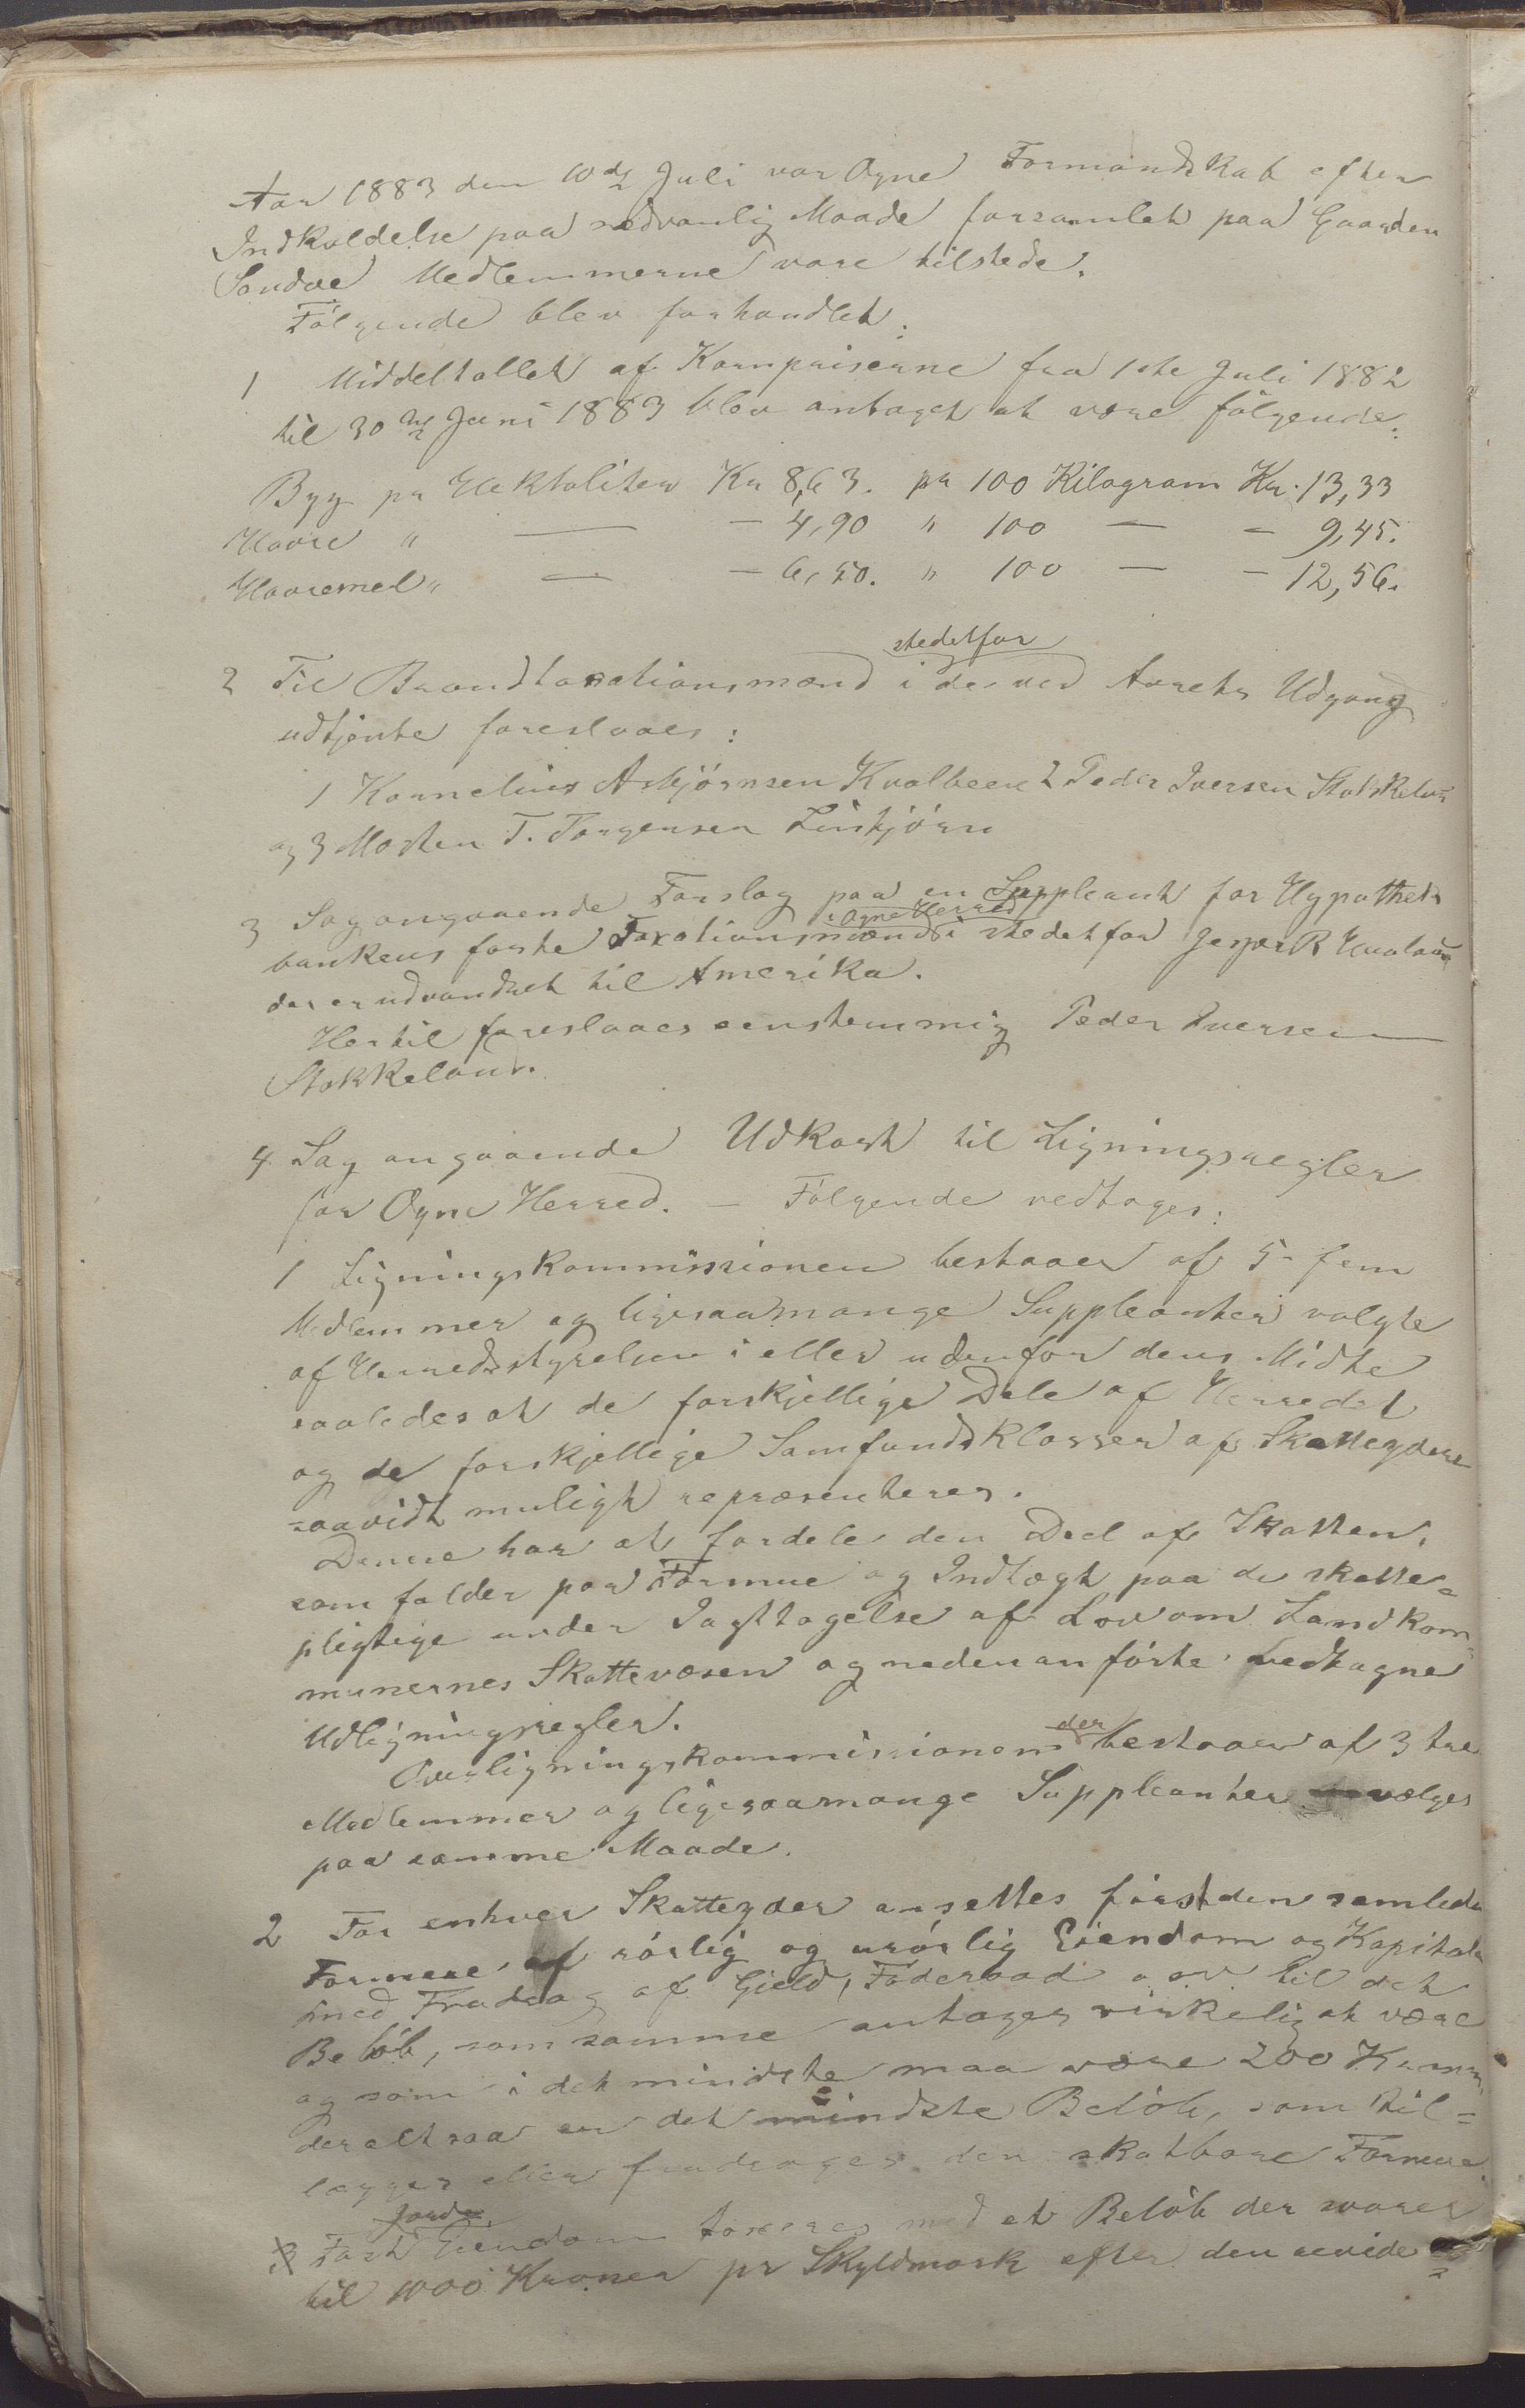 Aar 1883 den 10de Juli var Ogne Formandskab efter
Indkaldelse paa sædvanlig Maade forsamlet paa Gaarden
Sandve Medlemmerne vare tilstede.
Følgende blev forhandlet:
1 Middeltallet af Kornpriserne fra 1ste Juli 1882
til 30te Juni 1883 blev antaget at være følgende:
Byg pr Hektoliter Kr 8,63. pr 100 Kilogram Kr. 13,33
Havre " — - 4,90 " 100 — - 9,45.
Havremel " — - 6,50. " 100 — - 12,56.
stedetfor
2 Til Brandtaxationsmænd i de ved Aarets Udgang
udtjente foreslaaes:
1 Kornelius Asbjørnsen Kvalbeen 2 Peder Iversen Stokkeland
og 3 Morten T. Torgersen Linkjørn
3 Sag angaaende Forslag paa en Suppleant for Hypothek
i Ogne Herred
bankens faste Taxationsmænd i stedetfor Jesper R
der er udvandret til Amerika.
Hertil foreslaaes eenstemmig Peder Iversen
Stokkeland.
4. Sag angaaende Udkast til Ligningsregler
for Ogne Herred. — Følgende vedtages:
1 Ligningskommissionen bestaaer af 5 - fem
Medlemmer og ligesaamange Suppleanter valgte
af Herredsstyrelsen i eller udenfor dens Midte
saaledes at de forskjellige Dele af Herredet
og de forskjellige Samfundsklasser af Skatteydere
saavidt muligt repræsenteres.
Denne har at fordele den Deel af Skatten,
som falder paa Formue og Indtægt paa de skatte=
pligtige under Iagttagelse af Lov om Landkom=
munernes Skattevæsen og nedenanførte vedtagne
Udligningsregler.
der
Overligningskommissionen bestaaer af 3 tre
Medlemmer og ligesaamange Suppleanter vælges
paa samme Maade.
2 For enhver Skatteyder ansettes først den samlede
Formue af rørlig og urørlig Eiendom og Kapitaler
med Fradrag af Gjeld, Føderaad osv til det
Beløb, som samme antages virkelig at være
og som i det mindste maa være 200 Kroner,
der altsaa er det mindste Beløb, som til=
lægges eller fradrages den skatbare Formue.
Jorde
3 Fast Eiendom taxeres med et Beløb der svarer
til 1000 Kroner pr Skyldmark efter den revide=